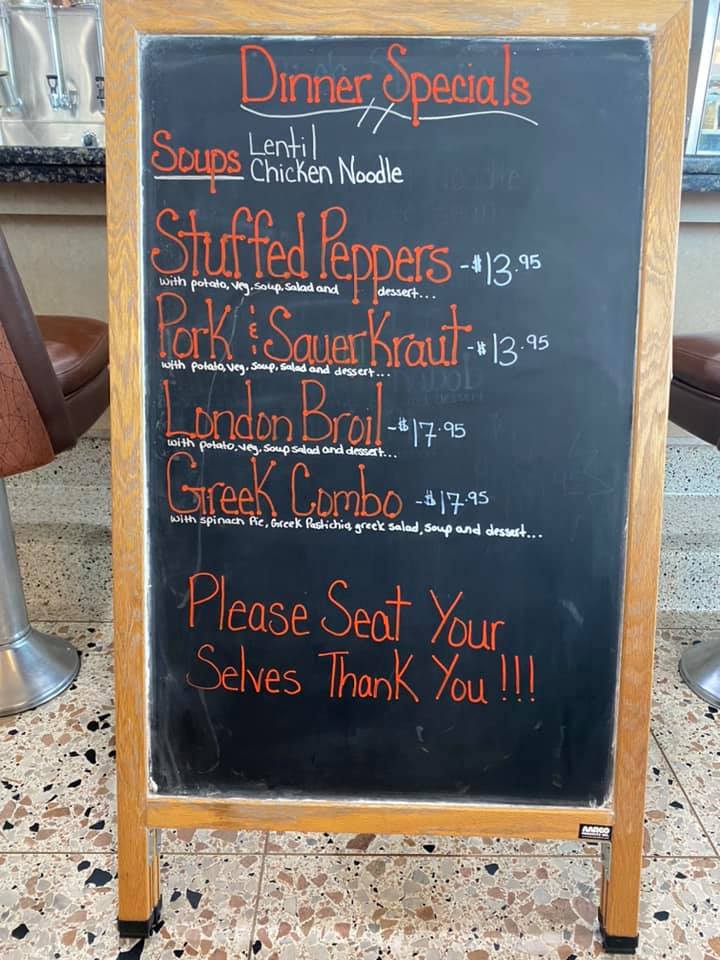 Dinner Specials
Soups Lentil
Chicken Noodle
Stuffed Peppers - $13.95
with potato, veg, soup, salad and dessert...
Pork & SauerKraut - $13.95
with potato, veg, soup, salad and dessert...
London Broil - $17.95
with potato, veg, soup salad and dessert...
Greek Combo - $17.95
with spinach Pie, Greek Pastichio, greek salad, soup and dessert...
Please Seat Your
Selves Thank You !!!
AARCO